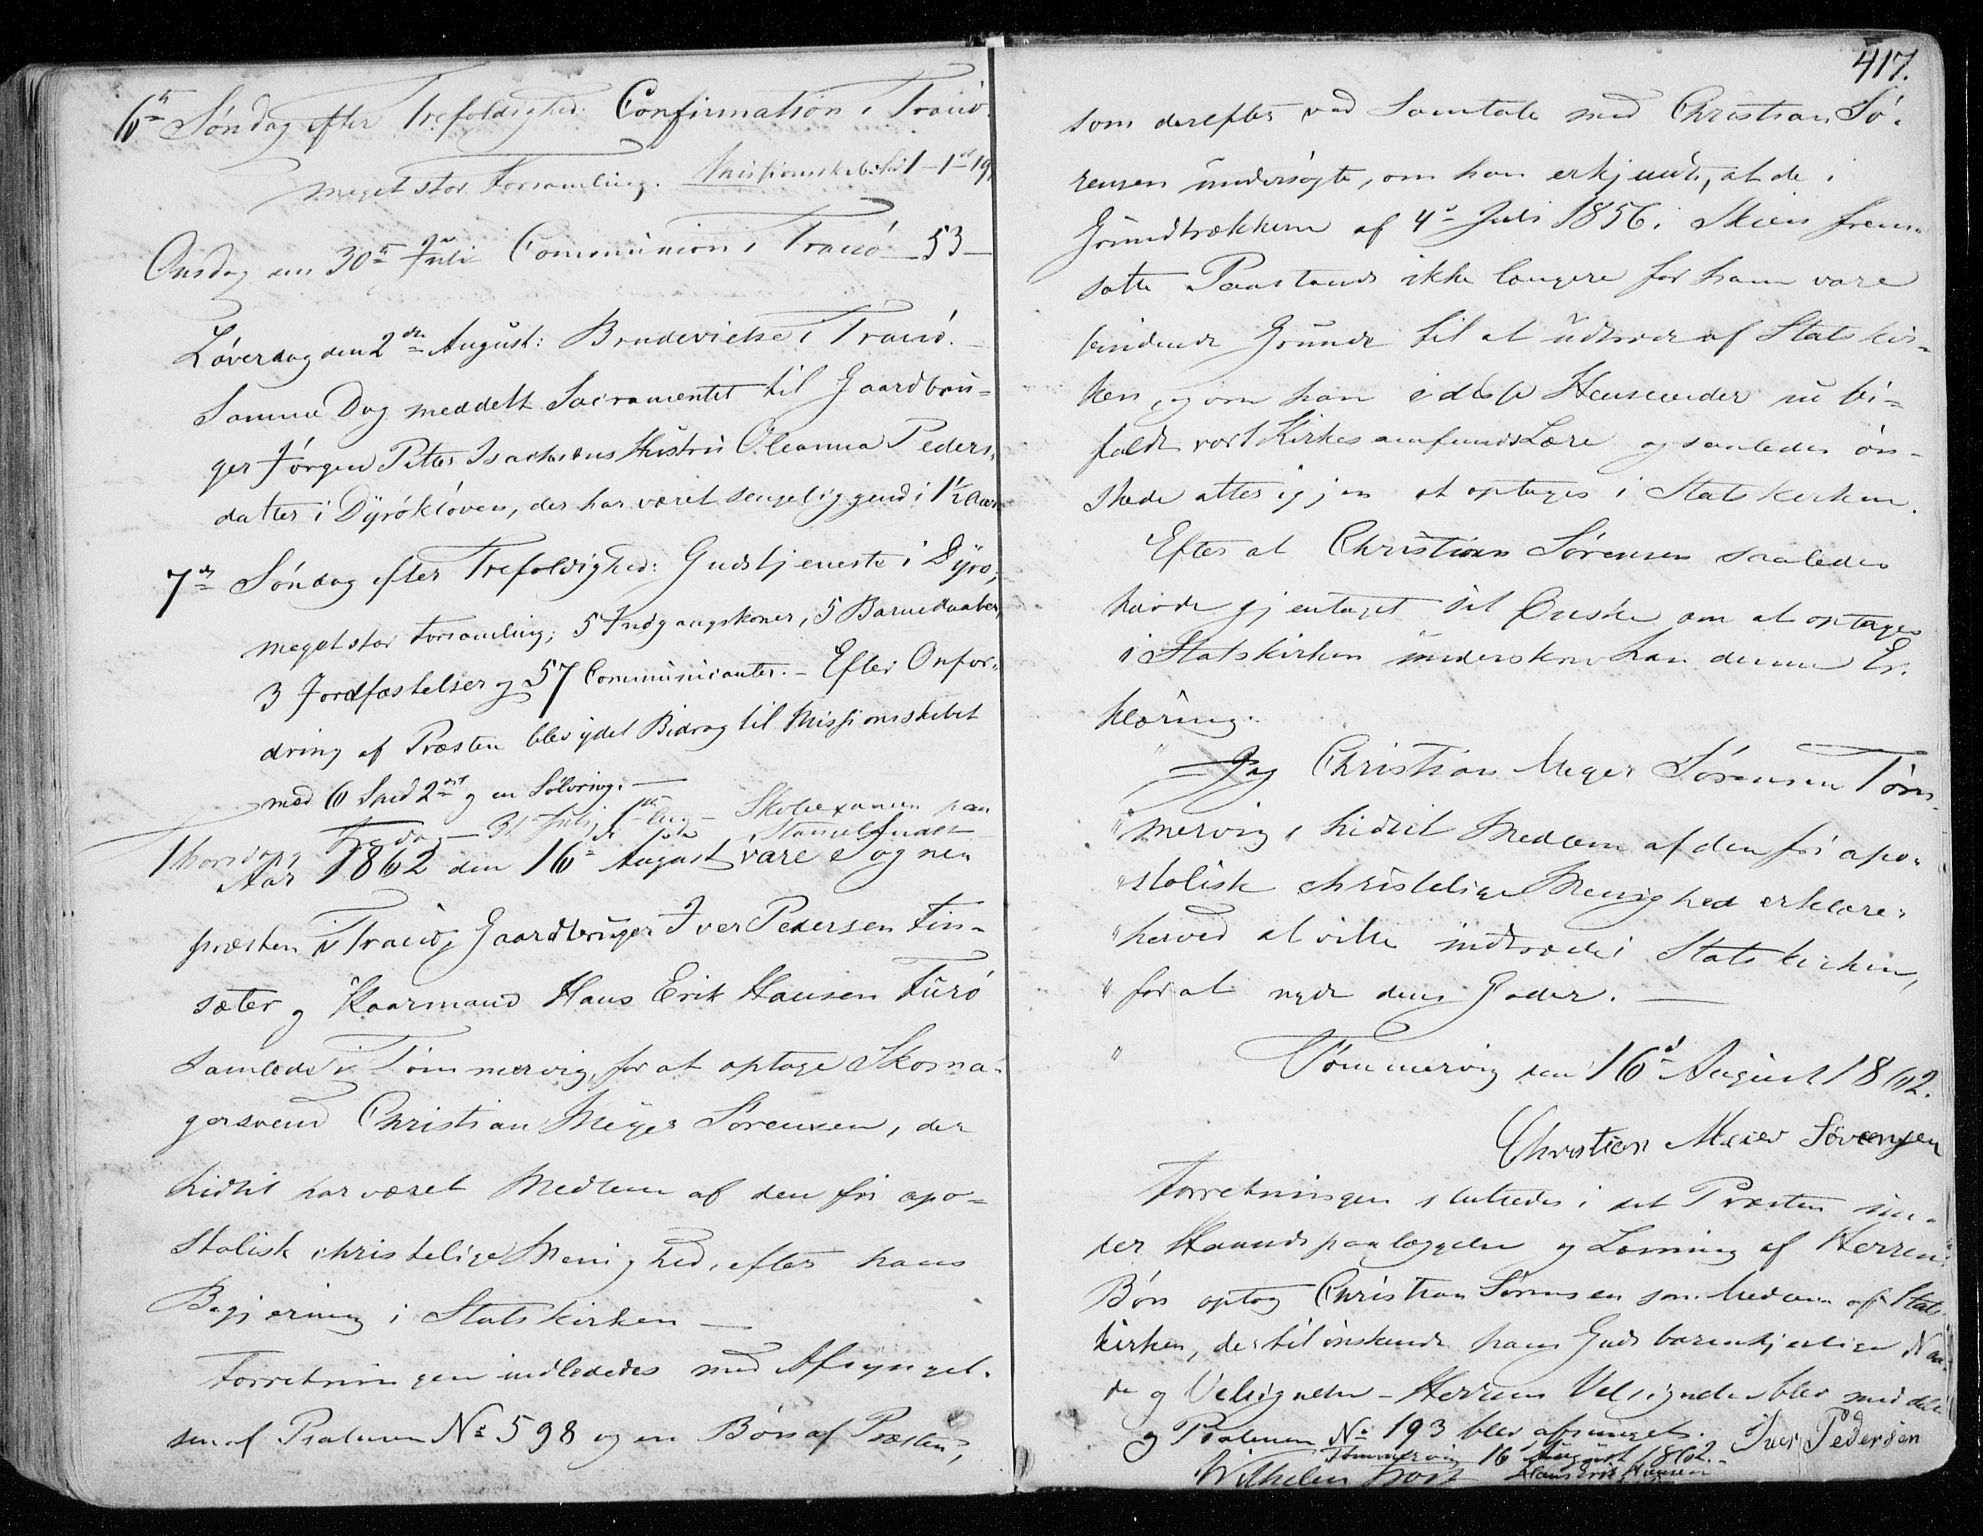 6te Søndag efter Trefoldighed: Confirmation i Tranö.
meget stor Forsamling. Missionsskibet 1-1-19
Onsdag den 30te Juli Communion i Tranö - 53 -
Löverdag den 2den August: Brudevielse i Tranö. -
Samme Dag meddelt Sacramentet til Gaardbru-
ger Jörgen Peter Isachsens Hustru Oleanna Peders-
datter i Dyröklöven, der har været sengeliggend i 1½ Aar
7de Söndag efter Trefoldighed: Gudstjeneste i Dyrö,
meget stor Forsamling; 5 Indgangskoner, 5 Barnedaaber,
3 Jordfæstelser og 57 Communicanter. - Efter Opfor-
dring af Præsten blev ydet Bidrag til Missionsskibet
med 6 Spd 2 ort og en Sölvring. -
Thorsdag Fredag 31 Juli, 1ste Aug - Skoleexamen paa
Aar 1862 den 16de August vare Sogne-
præsten i Tranö, Gaardbruger Iver Pedersen Fin-
sæter og Kaarmand Hans Erik Hansen Furö
samlede i Tömmervig, for at optage Skoma-
gersvend Christian Meyer Sörensen, der
hidtil har været Medlem af den fri apo-
stolisk christelige Menighed, efter hans
Begjering i Statskirken -
Forretningen indlededes med Afsyngel-
sen af Psalmen No 598 og en Bön af Præsten,
417.
som derefter ved Samtale med Christian Sö-
rensen undersögte, om han erkjendte, at de i
Grundtrækkene af 4de Juli 1856 i Skien frem-
satte Paastande ikke længere for ham vare
bindende Grunde til at udtræde af Statskir-
ken, og om han i disse Henseender nu bi-
faldt vort Kirkesamfunds Lære og saaledes ön-
skede atter igjen at optages i Statskirken.
Efter at Christian Sörensen saaledes
havde gjentaget sit Önske om at optages
i Statskirken underskrev han denne Er-
klæring.
" Jeg Christian Meyer Sörensen Töm-
" mervig, hidtil Medlem af den fri apo-
" stolisk christelige Menighed erklærer
" herved at ville indtræde i Statskirken,
" for at nyde dens Goder. -
" Tömmervig den 16de August 1862.
Christian Meier Sörensen
Forretningen sluttedes i det Præsten un-
der Haandspaalæggelse og Læsning af Herrens
Bön optog Christian Sörensen som Medlem af Stats-
kirken, dertil önskende ham Guds barmhjertige Naa-
de og Velsignelse - Herrens Velsignelse blev meddelt
og Psalmen No 193 blev afsunget.
Tömmervig 16 August 1862. Iver Pedersen
Wilhelm Hans Erik Hansen